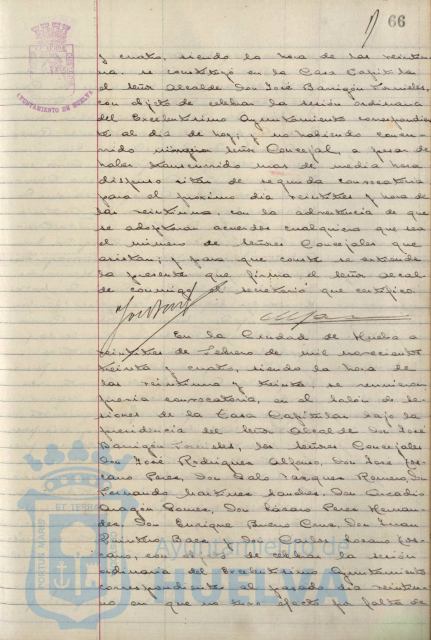 66
AYUNTAMIENTO DE HUELVA
y cuatro, siendo la hora de las veintiu-
na, se constituyó en la Casa Capitular
el Señor Alcalde Don José Barrigón Fornieles,
con objeto de celebrar la sesión ordinaria
del Excelentísimo Ayuntamiento correspondien-
te al día de hoy; y no habiendo concu-
rrido ningún Señor Concejal, a pesar de
haber transcurrido mas de media hora
dispuso citar de segunda convocatoria
para el próximo día veintitres y hora de
las veintiuna, con la advertencia de que
se adoptarán acuerdos cualquiera que sea
el número de Señores Concejales que
asistan; y para que conste se extiende
la presente que firma el Señor Alcal-
de conmigo el secretario que certifico.
En la Ciudad de Huelva a
veintitres de Febrero de mil novecientos
treinta y cuatro, siendo la hora de
las veintiuna y treinta se reunieron
previa convocatoria, en el salón de se-
siones de la Casa Capitular bajo la
presidencia del Señor Alcalde Don José
Barrigón Fornieles, los Señores Concejales
Don José Rodríguez Alfonso, Don José
Perez, Don Vazquez Romero, Don
Fernando Martinez Sanchez, Don Arcadio
Aragón Gomez, Don Lázaro Perez Hernan-
dez, Don Enrique Bueno Cruz, Don Juan
Quintero Baez y Don Carlos
con objeto de celebrar la sesión
ordinaria del Excelentísimo Ayuntamiento
correspondiente al pasado día veintiu-
no en que no tuvo efecto por falta de
PORTUS MARIS ET TERRAE
Ayuntamiento de
HUELVA